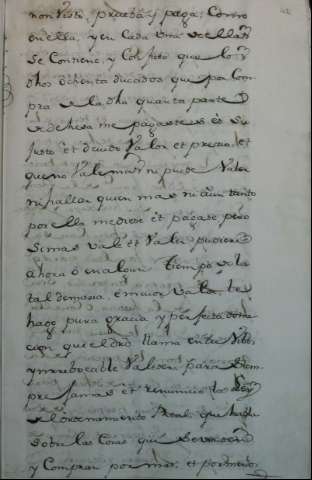 non vista, prueba y paga, Como
en ella, y en Cada Una de ellas
Se Contiene, y Confieso que los
dhos ochenta ducados que por Com
pra de la dha quarta parte
de dehesa me pagasteis es Su
justo et devido Valor et precio, et
que no Vale mas ni puede Valer
ni hallar quien mas ni aun tanto
por ella me diese et pagase pero
Si mas Vale et Valer pudiere
ahora ó en algun tiempo de la
tal demasia, é maior Valor, te
hago pura gracia, y perfecta dona
cion que el dro. llama entre Vibos
y irrebocable Valedera para Siem
pre jamas et renuncio las Leyes
del ordenamiento Real, que hablan
sobre las Cosas que Se venden
y Compran por mas, et por menos